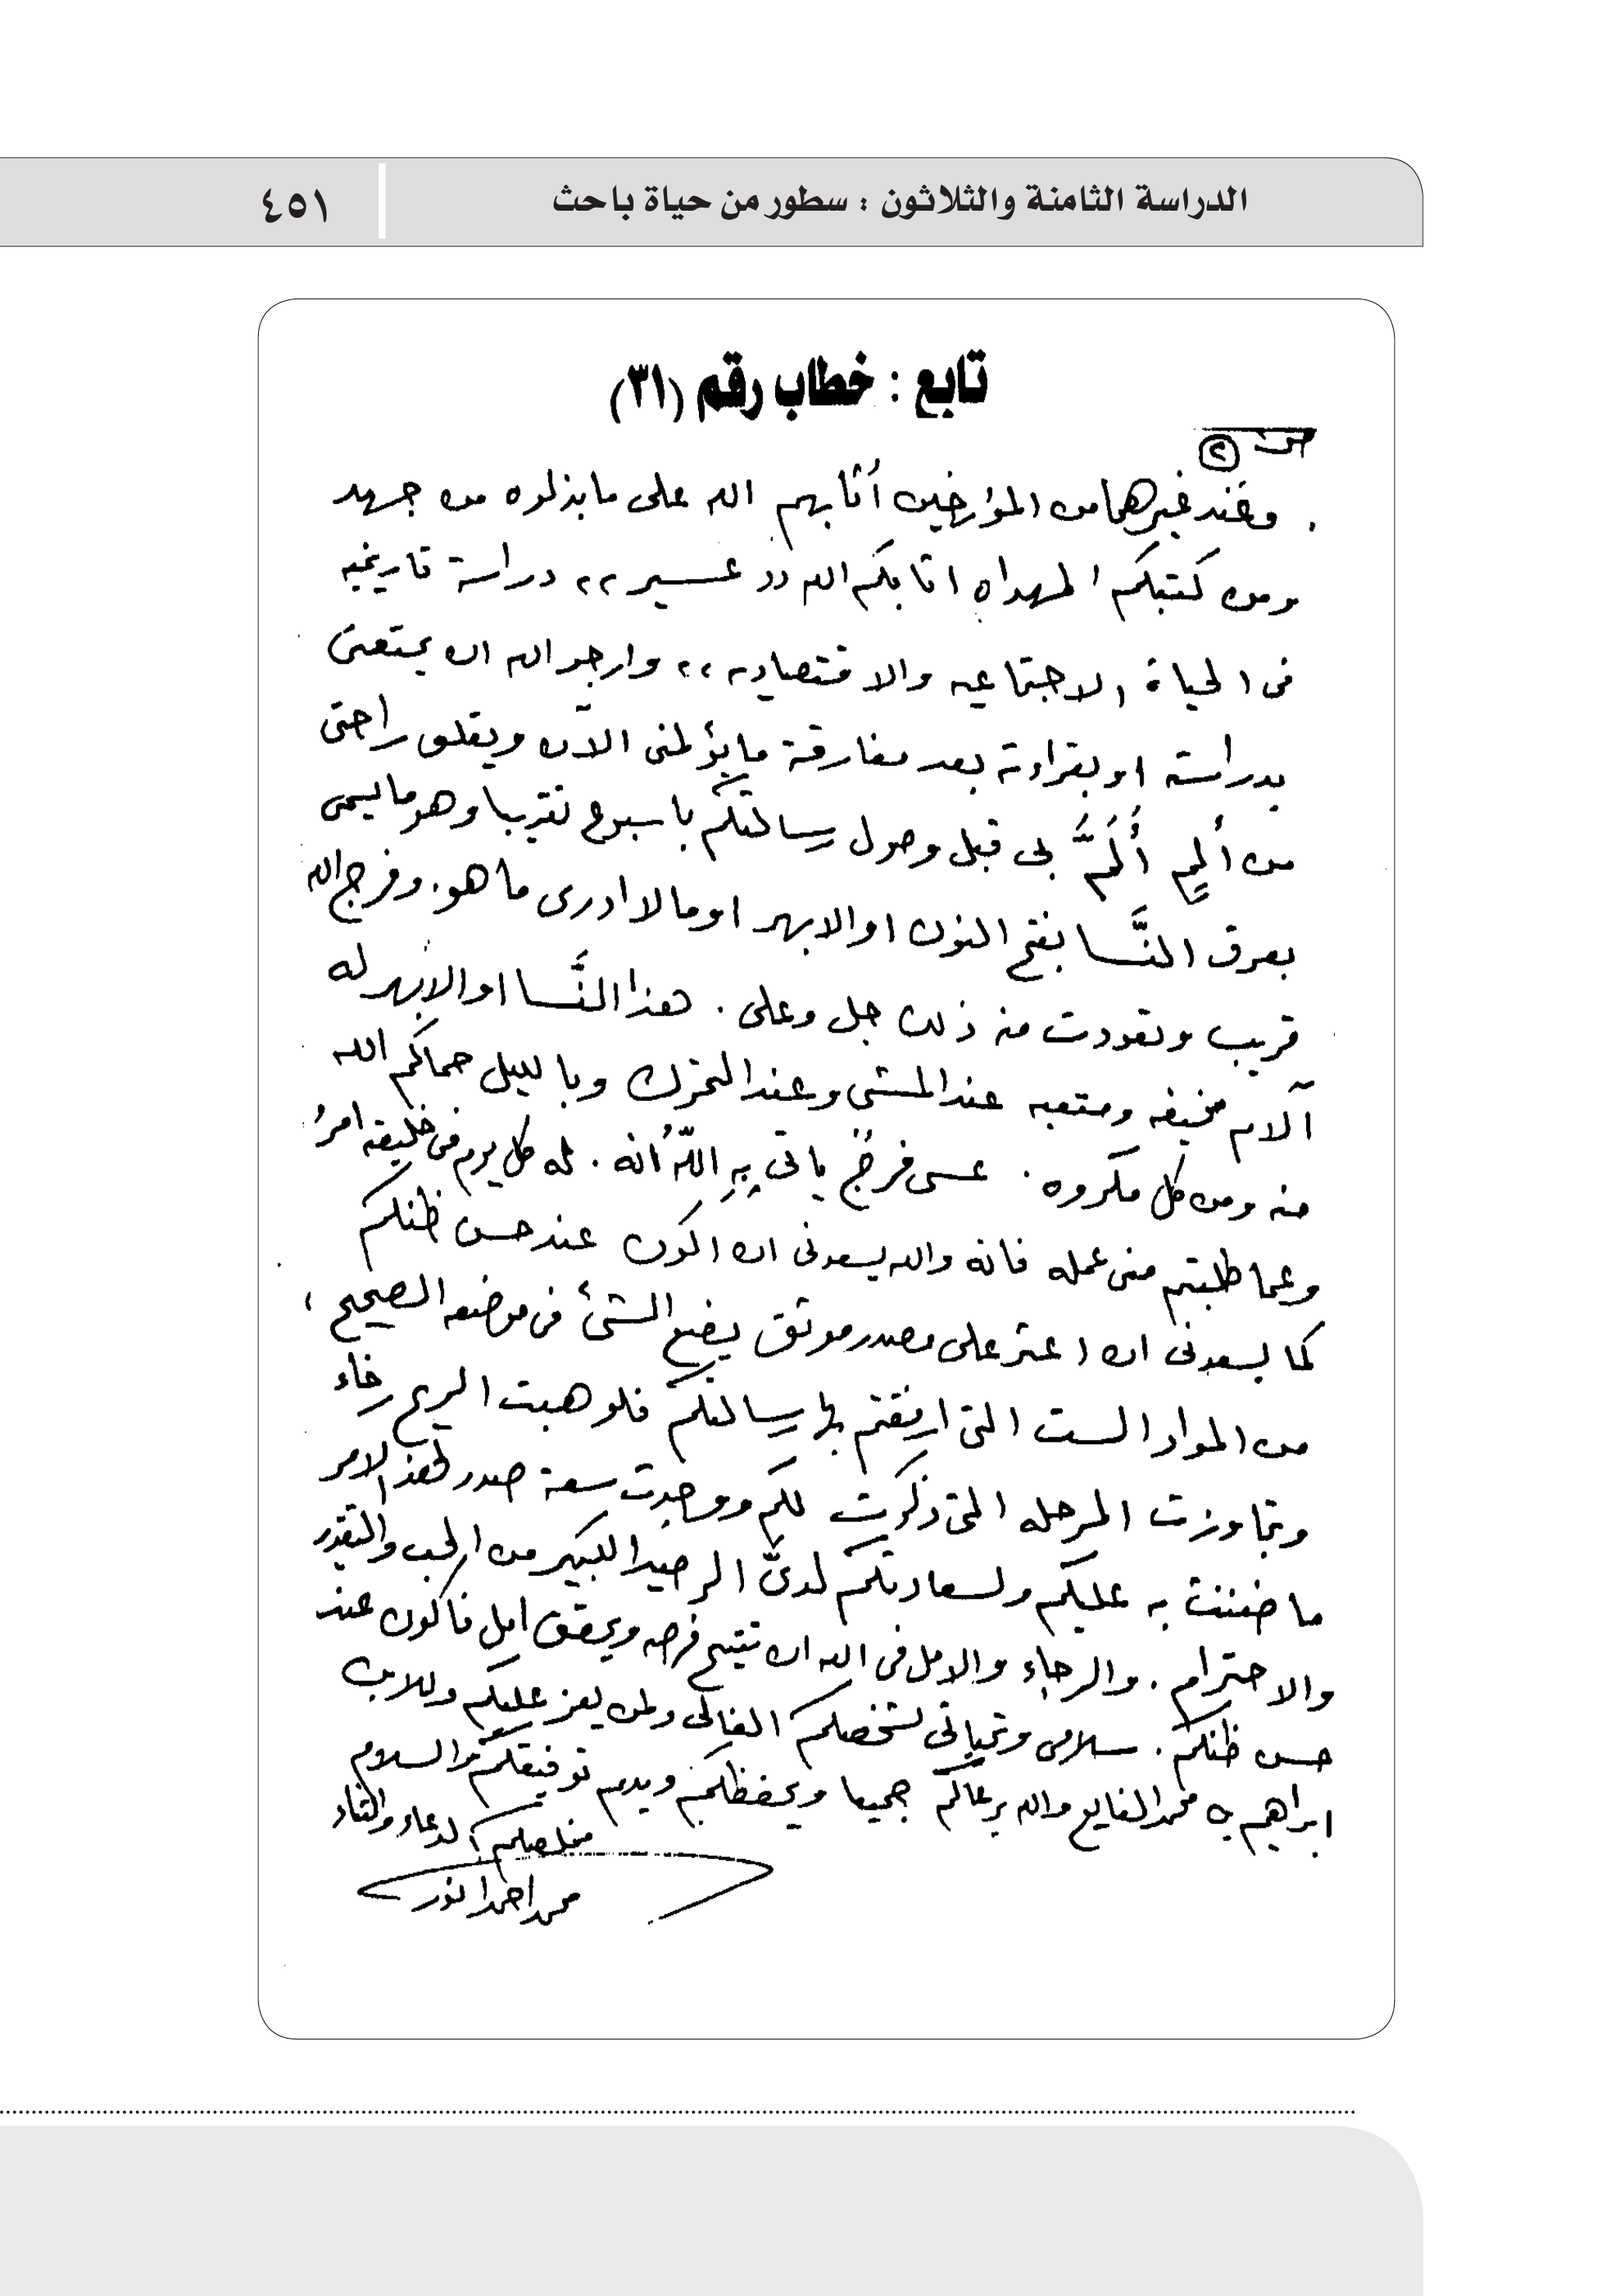 الدراسة الثامنة والثلاثون : سطور من حياة باحث
٤٥١
تابع : خطاب رقم (٣١)
ص ٢
. وعند غيرهما من المؤرخين أثابهم الله على ما بذلوه من جهد
ومن كتبكم المهداه اثابكم الله ،، عسير ،، دراسة تاريخيه
فى الحياة الاجتماعيه والاقتصاديه ،، وارجو الله ان يمتعنى
بدراسته او بقراءته بعد مفارقة ما يؤلمنى الآن ويقلق راحتى
من ألمٍ أَلَمَّ بى قبل وصول رسالتكم باسبوع تقريبا وهو ما يسمى
بعرق النَّسا بفتح النون او الابهر او ما لا ادرى ما هو . وفرج الله
قريب وتعودت منه ذلك جل وعلى . هذا النَّسا او الابهر له
آلام مخيفه ومتعبه عند المشى وعند التحرك وبالليل حماكم الله
منه ومن كل مكروه . عسى فرجٌ ياتى بِهِ اللّهُ انه . له كل يوم فى خليقته امرُ
وعما طلبتم منى عمله فانه والله يسعدنى ان اكون عند حسن ظنكم
كما يسعدنى ان اعثر على مصدر موثق يضع الشئ فى موضعه الصحيح ،
من المواد الست التى ارفقتم بها رسالتكم فلو هبت الريح رخاء
وتجاوزت المرحله التى ذكرت لكم ووجدت سعة صدر لهذا الامر
ما ضننت به عليكم ولسعادتكم لدىَّ الرصيد الكبير من الحب والتقدير
والاحترام . والرجاء والامل فى الله ان تتيح فرصه ويحقق امل فاكون عند
حسن ظنكم . سلامى وتحياتى لشخصكم الغالى ولمن يعز عليكم وللاب
ابراهيم بن محمد الفايع والله يرعاكم جميعا ويحفظكم ويديم توفيقكم والسلام
مخلصكم لدعاء والثناء
محمد احمد انور